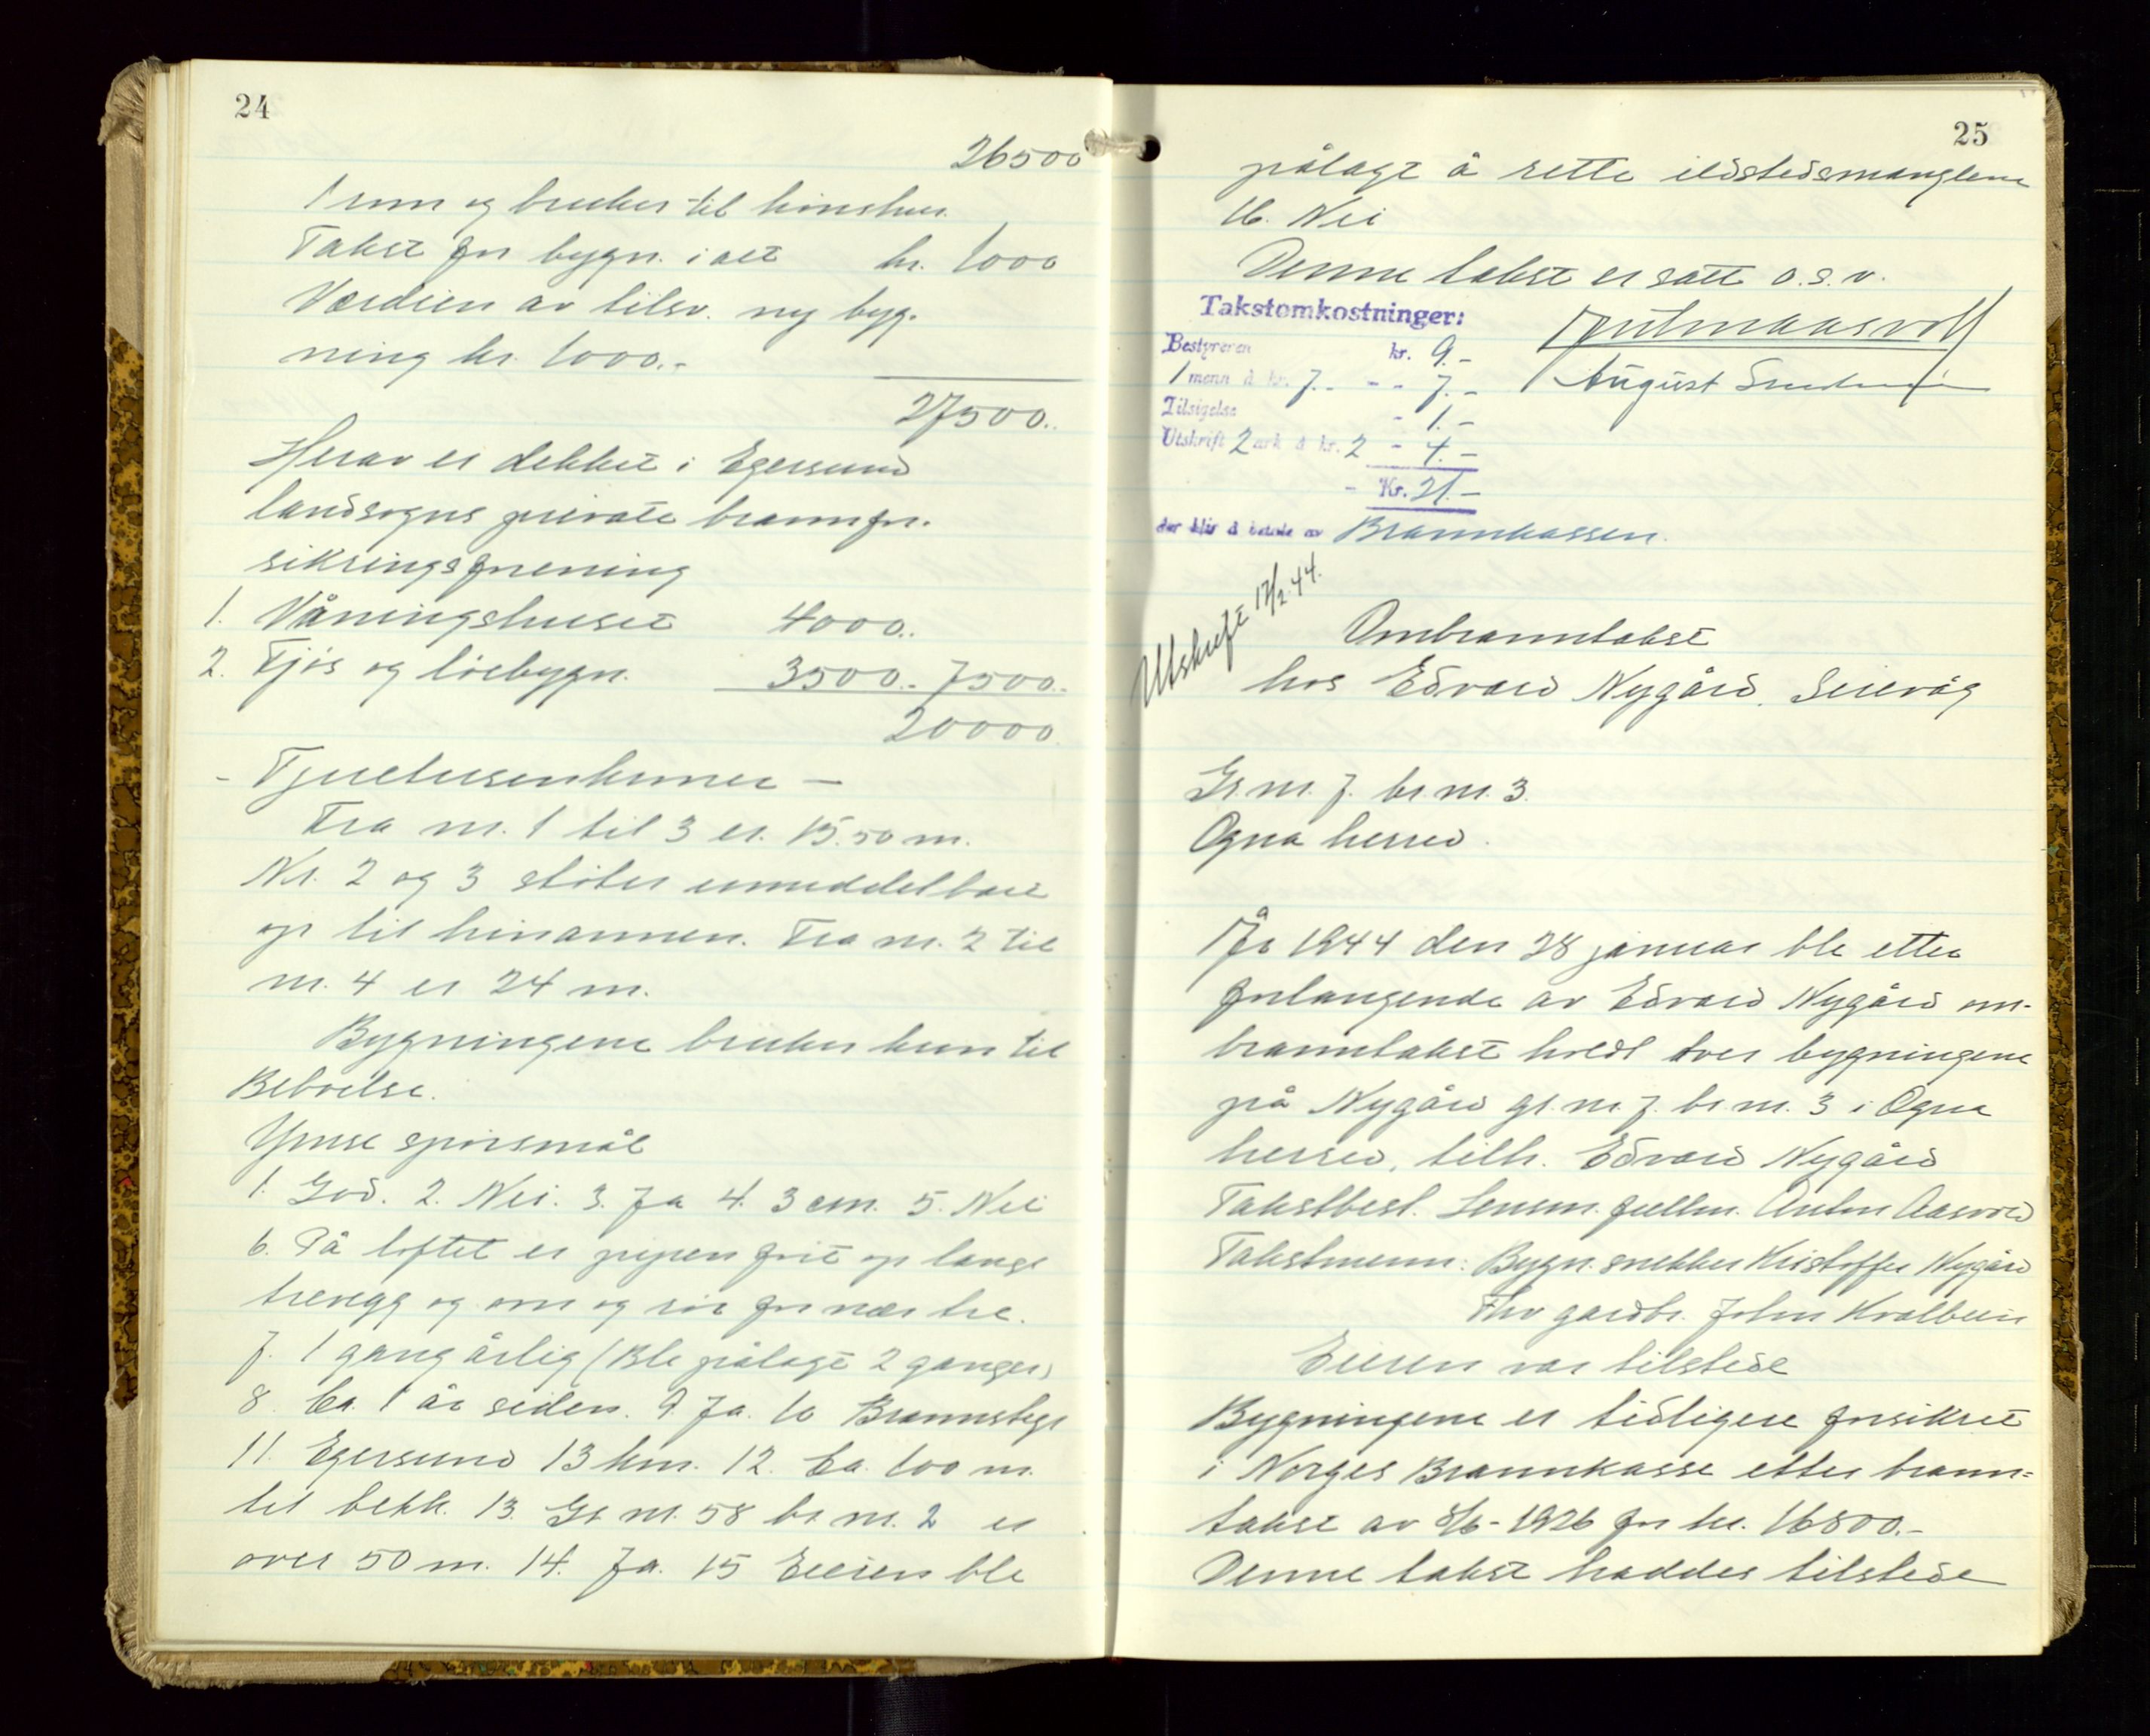 24
26500
1 rum og brukes til hönshus.
Takst for bygn. i alt kr. 1000
Verdien av tilsv. ny byg-
ning kr. 1000.-
27500.
Herav er dekket i Egersund
landsogns private brannfor-
sikringsforening
1. Våningshuset 4000.
2. Fjös og löebygn. 3500.- 7500.-
20000
- Tjuetusenkroner -
Fra nr. 1 til 3 er 15.50 m.
Nr. 2 og 3 stöter umiddelbart
op til hinannen. Fra nr. 2 til
nr. 4 er 24 m.
Bygningene brukes kun til
Beboelse.
Ymse spörsmål
1. God. 2. Nei. 3. Ja 4. 3 cm. 5. Nei
6. På loftet er pipen fört op langs
trevegg og ovn og rör for nær tre.
7. 1 gang årlig (Ble pålagt 2 ganger)
8. Ca. 1 år siden. 9. Ja. 10 Brannstige
11. Egersund 13 km. 12. Ca. 100 m.
til bekk. 13. Gr nr. 58 br nr. 2 er
over 50 m. 14. Ja. 15 Eieren ble
25
pålagt å rette ildstedsmanglene
16. Nei
Denne takst er satt o.s.v.
Takstomkostninger:
Bestyreren kr. 9.-
1 menn à kr. 7.- - - 7.-
Tilsigelse - 1.-
Utskrift 2 ark à kr. 2 - 4.-
- Kr. 21.-
der blir å betale av Brannkassen.
August
Utskrift 12/2.44.
Ombranntakst
hos Edvard Nygård, Sirevåg
Gr. nr. 7. br. nr. 3.
Ogna herred.
År 1944 den 28 januar ble etter
forlangende av Edvard Nygård om-
branntakst holdt over bygningene
på Nygård gr. nr. 7. br. nr. 3 i Ogna
herred, tilh. Edvard Nygård
Takstbest. Lensm. fullm. Anton Aasvold
Takstmenn: Bygn. snekker Kristoffer Nygård
Fhv gardbr. John Kvalbein
Eieren var tilstede
Bygningene er tidligere forsikret
i Norges Brannkasse etter brann=
takst av 8/6-1926 for kr. 16800.-
Denne takst haddes tilstede